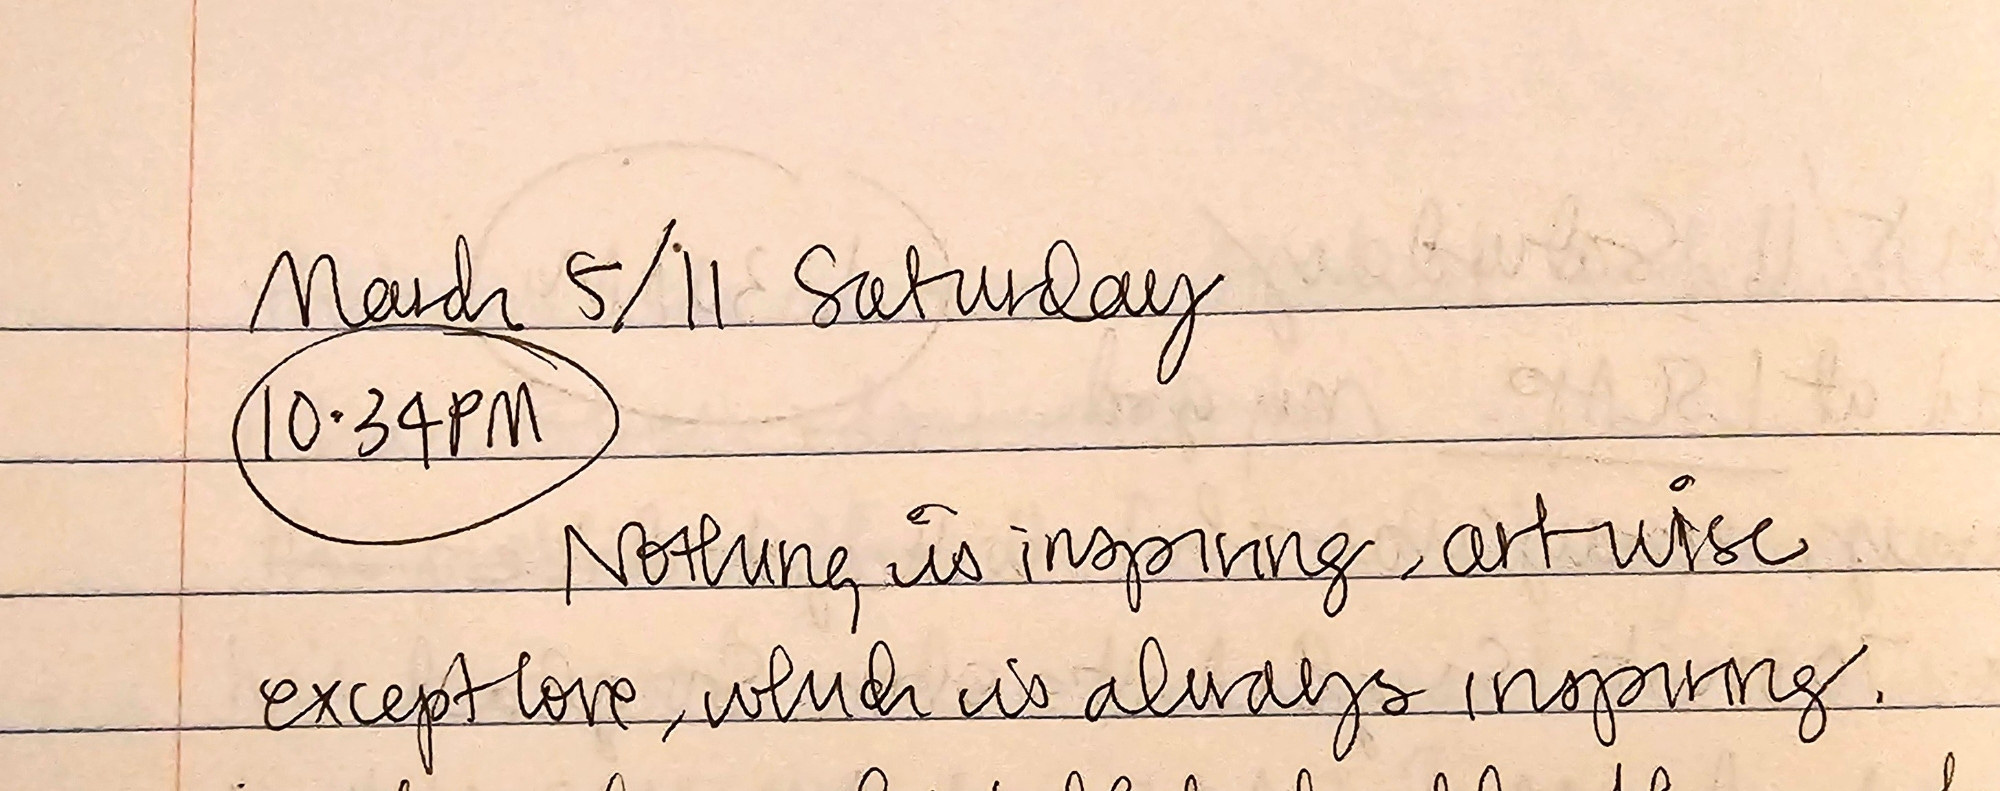 March 5/11 Saturday
10.34PM
Nothing is inspiring, art wise
except love, which is always inspiring.